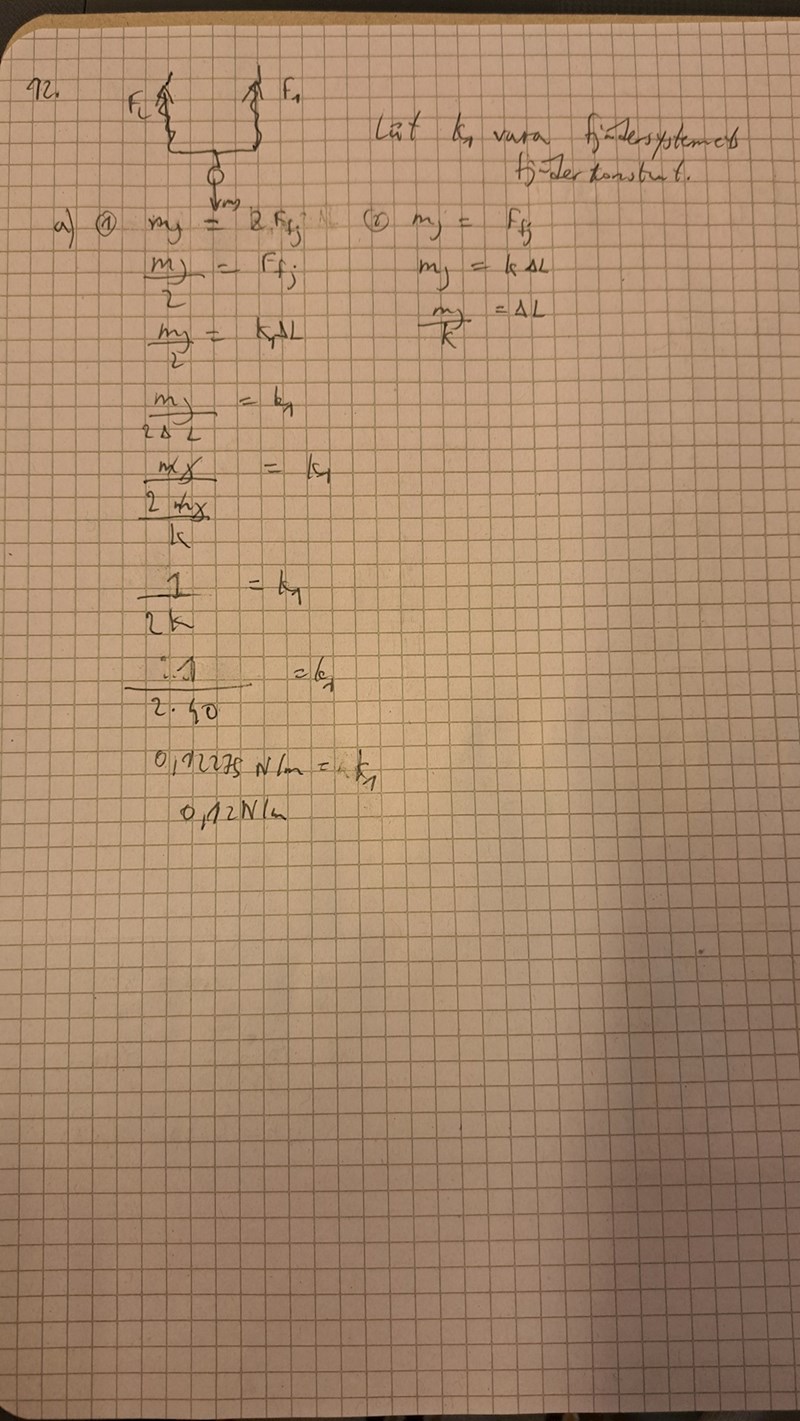 12.
F₂ F₁
Låt k₁ vara fjädersystemets
fjäderkonstant.
mg
a) ① mg = 2 F_fj ② mg = F_fj
mg/2 = F_fj mg = k ΔL
mg/2 = k₁ΔL mg/k = ΔL
mg/2ΔL = k₁
mg/(2mg/k) = k₁
1/2k = k₁
1/2·40 = k₁
N/m = k₁
0,12 N/m